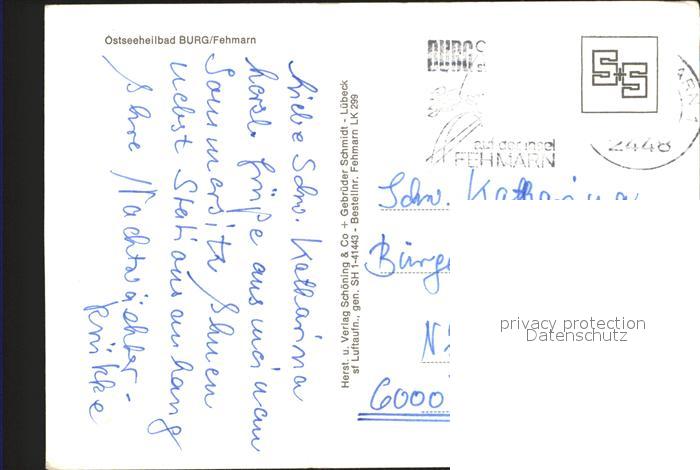 Ostseeheilbad BURG/Fehmarn
Liebe Schw. Katharina
herzl. Grüße aus meinem
Sommersitz Ihnen
nebst Stationsanhang
Ihre Nachtwächter-
Herst. u. Verlag Schöning & Co + Gebrüder Schmidt - Lübeck
sf Luftaufn., gen. SH 1-41443 - Bestellnr. Fehmarn LK 299
BURG
auf der Insel
FEHMARN
2448
S+S
Schw. Katharina
Bürge
N
6000
privacy protection
Datenschutz